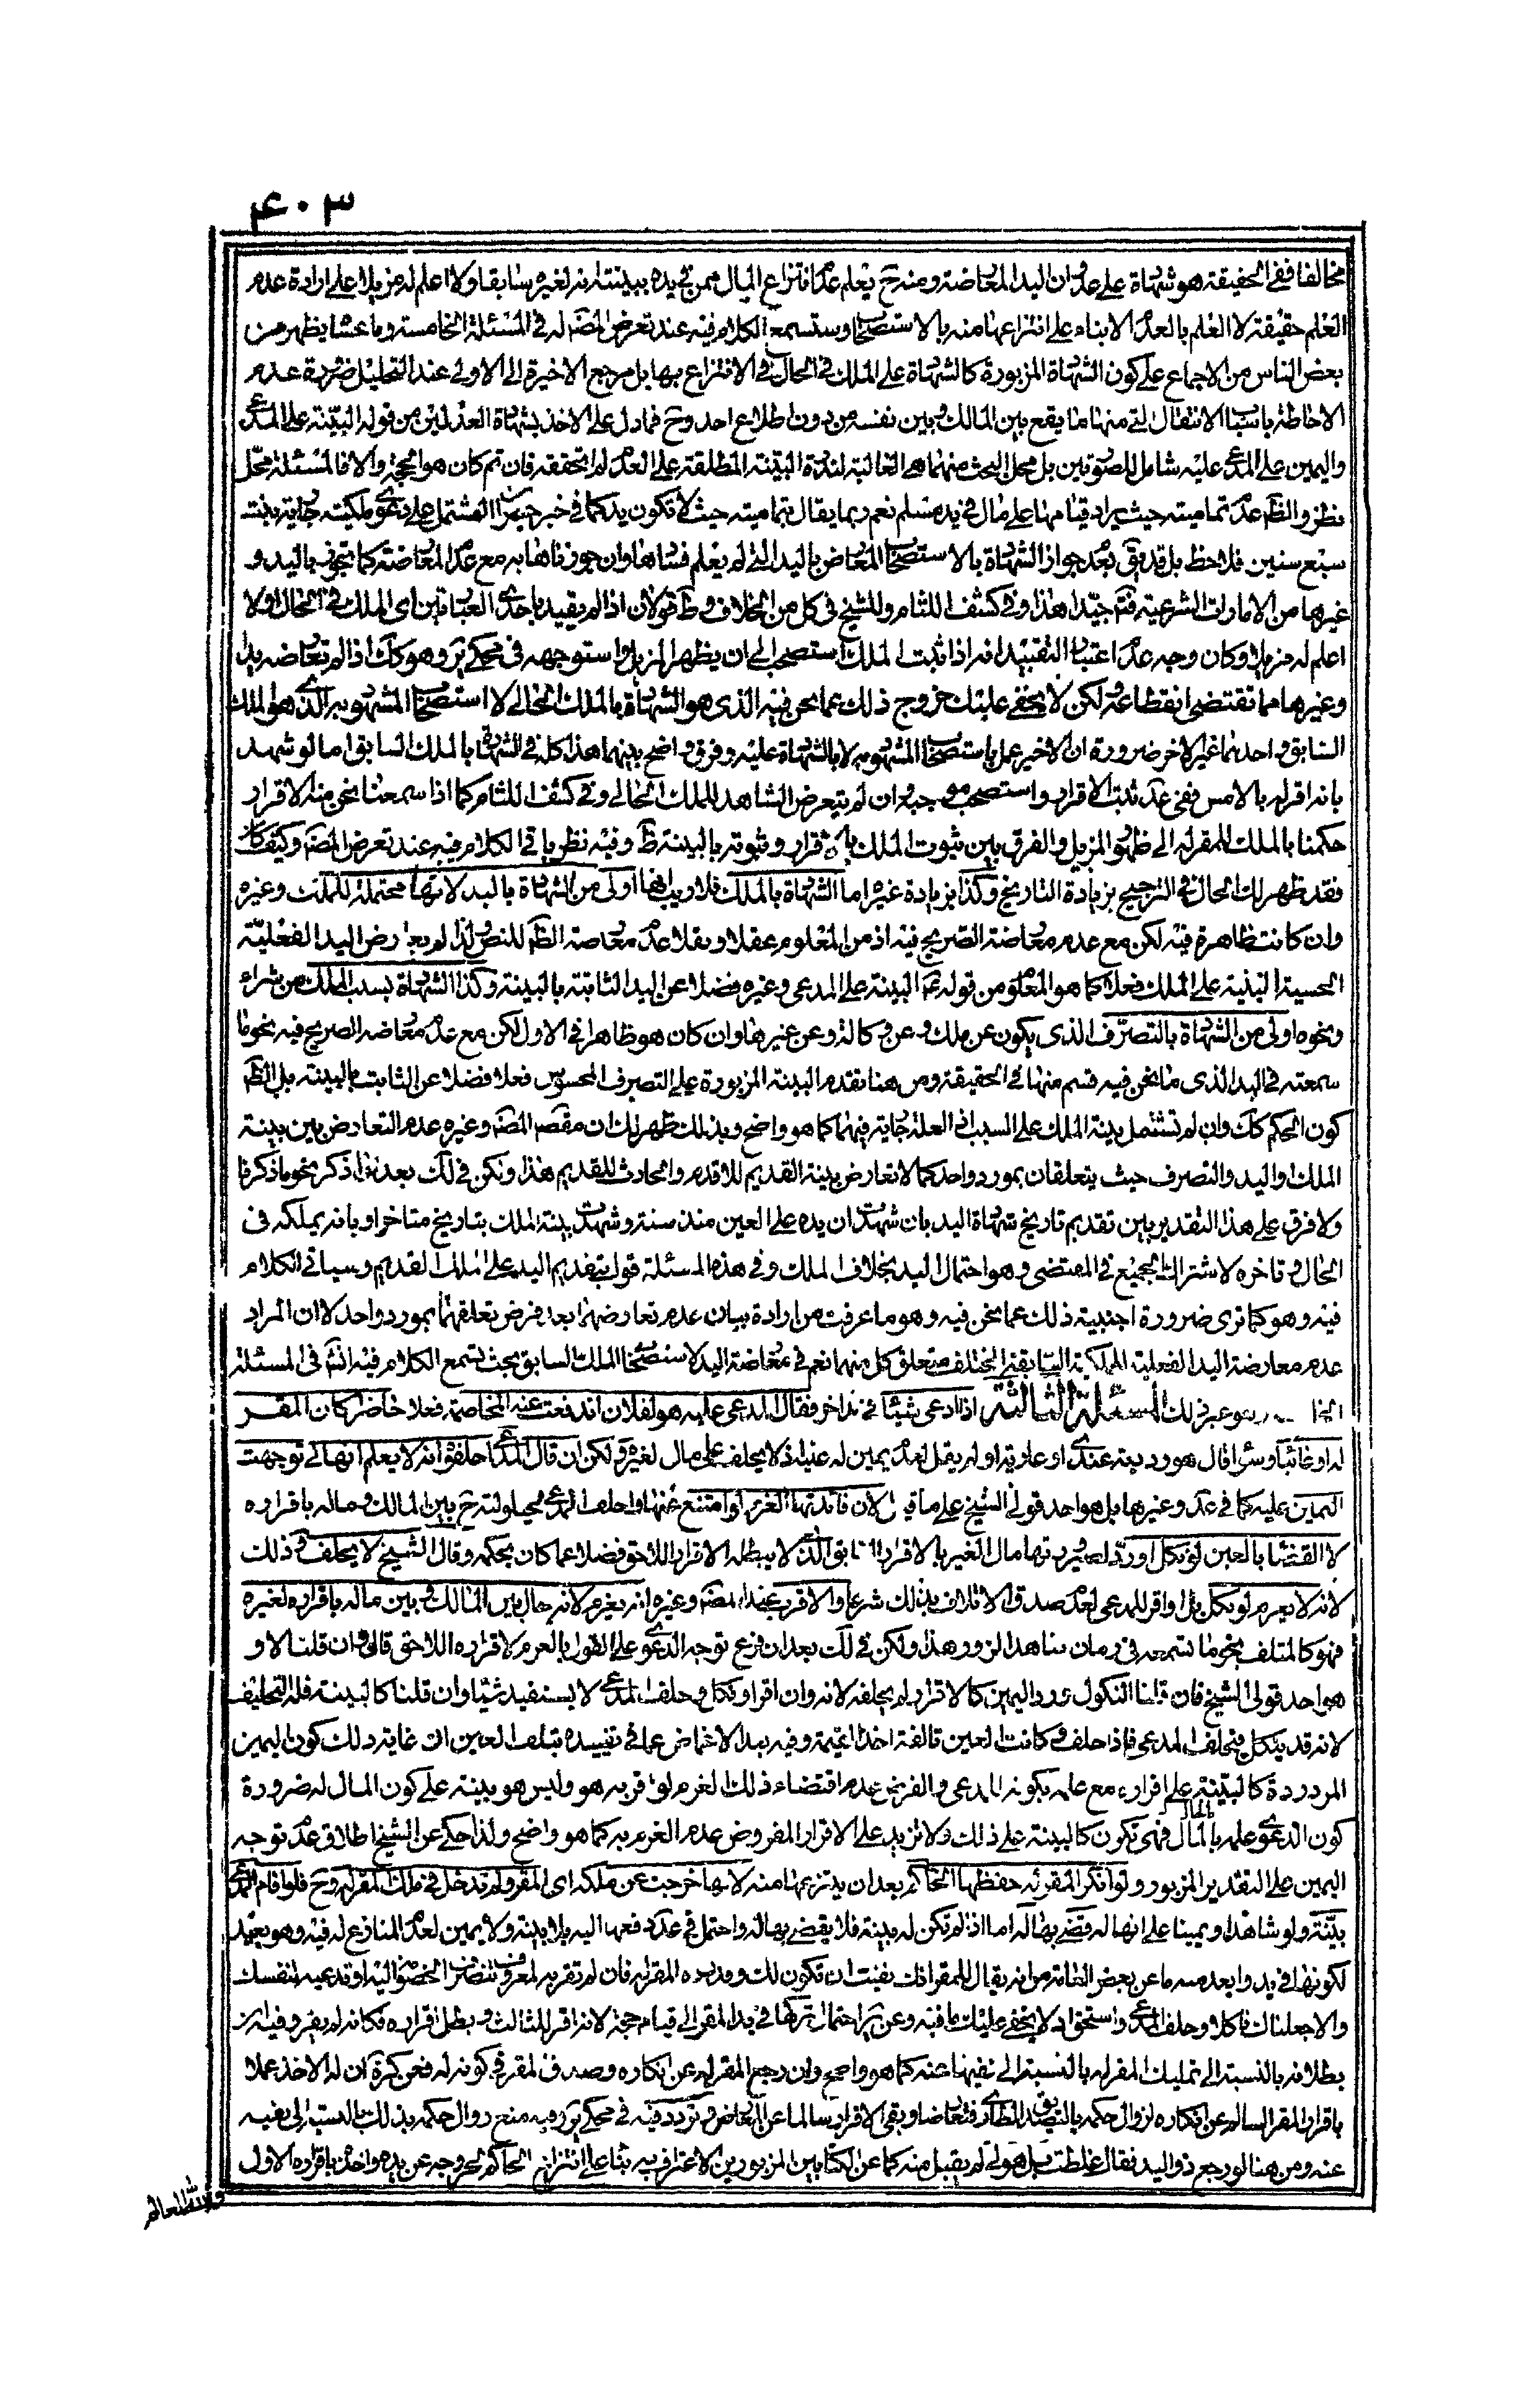 ٤٠٣
مخالفا ففى الحقيقة هو شهادة على عدوان اليد المعارضة ومنه ح يعلم عدم انتزاع المال ممن فى يده ببينة انه لغيره سابقا ولا اعلم له مزيلا على ارادة عدم
العلم حقيقة لا العلم بالعدم الا بناء على انتزاعها منه بالاستصحاب وستسمع الكلام فيه عند تعرض المصنف له فى المسئلة الخامسة وما عشا يظهر من
بعض الناس من الاجماع على كون الشهادة المزبورة كالشهادة على الملك فى الحال فى الانتزاع بها بل مرجع الاخيرة الى الاولى عند التحليل ضرورة عدم
الاحاطة باسباب الانتقال التى منها ما يقع بين المالك وبين نفسه من دون اطلاع احد وح فما دل على الاخذ بشهادة العدلين من قوله البينة على المدعى
واليمين على المدعى عليه شامل للصورتين بل محل البحث منهما هى الغالبة لندرة البينة المطلقة على العدم ان لم تحققه فان تم كان هو الحجة والا فالمسئلة محل
نظر والظم عدم تماميته حيث يراد قيامها على مال فى يد مسلم نعم ربما يقال بتماميته حيث لا تكون يد كما فى خبر حمران المشتمل على دعوى ملكية جارية بنت
سبع سنين فلاحظ بل قد يقوى بعد جواز الشهادة بالاستصحاب المعارض باليد التى لم يعلم فسادها وان جوزناها به مع عدم المعارضة كما تجوز باليد و
غيرها من الامارات الشرعية فتم جيدا هذا وفى كشف اللثام وللشيخ فى كل من الخلاف وط قولان اذا لم يقيد باحدى العبارتين اى الملك فى الحال او لا
اعلم له مزيلا وكان وجه عدم اعتبار التقييد انه اذا ثبت الملك استصحب الى ان يظهر المزيل واستوجهه فى محكى ير وهو كك اذا لم تعارضه يد
وغيرها مما تقتضى انقطاعه لكن لا يخفى عليك خروج ذلك عما نحن فيه الذى هو الشهادة بالملك الحالى لا استصحاب المشهود به الذى هو الملك
السابق واحدهما غير الاخر ضرورة ان الاخير عمل باستصحاب المشهود به لا بالشهادة عليه وفرق واضح بينهما هذا كله فى الشهادة بالملك السابق اما لو شهد
بانه اقر له بالامس ففى عد ثبت الاقرار واستصحب موجبه وان لم يتعرض الشاهد للملك الحالى وفى كشف اللثام كما اذا سمعنا نحن منه الاقرار
حكمنا بالملك للمقر له الى ظهور المزيل والفرق بين ثبوت الملك بالاقرار وثبوته بالبينة ظ وفيه نظر ياتى الكلام فيه عند تعرض المصنف وكيف كان
فقد ظهر لك الحال فى الترجيح بزيادة التاريخ وكذا بزيادة غيره اما الشهادة بالملك فلا ريب انها اولى من الشهادة باليد لانها محتملة للملك وغيره
وان كانت ظاهرة فيه لكن مع عدم معارضة الصريح فيه اذ من المعلوم عقلا ونقلا عدم معارضة الظم للنص ولذا لم يعارض اليد الفعلية
الحسية البينة على الملك فعلا كما هو المعلوم من قوله عم البينة على المدعى وغيره فضلا عن اليد الثابتة بالبينة وكذا الشهادة بسبب الملك من شراء
ونحوه اولى من الشهادة بالتصرف الذى يكون عن ملك وعن وكالة وعن غيرها وان كان هو ظاهرا فى الاول لكن مع عدم معارضة الصريح فيه نحو ما
سمعته فى اليد الذى ما نحن فيه قسم منها فى الحقيقة ومن هنا تقدم البينة المزبورة على التصرف المحسوس فعلا فضلا عن الثابت بالبينة بل الظم
كون الحكم كك وان لم تشتمل بينة الملك على السبب اذ العلة جارية فيهما كما هو واضح وبذلك ظهر لك ان مقصد المصنف وغيره عدم التعارض بين بينة
الملك واليد والتصرف حيث يتعلقان بمورد واحد كما لا تعارض بينة القديم للاقدم والحادث للقديم هذا ولكن فى لك بعد ان ذكر نحو ما ذكرنا
ولا فرق على هذا التقدير بين تقديم تاريخ شهادة اليد بان شهدت ان يده على العين منذ سنة وشهدت بينة الملك بتاريخ متاخر او بانه يملكه فى
الحال وتاخره لاشتراك الجميع فى المقتضى وهو احتمال اليد بخلاف الملك وفى هذه المسئلة قول بتقديم اليد على الملك القديم وسياتى الكلام
فيه وهو كما ترى ضرورة اجنبية ذلك عما نحن فيه وهو ما عرفت من ارادة بيان عدم تعارضهما بعد فرض تعلقهما بمورد واحد لا ان المراد
عدم معارضة اليد الفعلية للملكية السابقة المختلف متعلق كل منهما نعم فى معارضة اليد لاستصحاب الملك السابق بحث تسمع الكلام فيه انش فى المسئلة
وغير ذلك المسئلة الثالثة اذا ادعى شيئا فى يد اخر فقال المدعى عليه هو لفلان اندفعت عنه المخاصمة فعلا حاضرا كان المقر
له او غائبا وسواء قال هو وديعة عندى او عارية او لم يقل لعدم يمين له عليه اذ لا يحلف على مال لغيره ولكن ان قال المدعى احلفوه انه لا يعلم انها لى توجهت
اليمين عليه كما فى عد وغيرها بل هو احد قولى الشيخ على ما قيل لان فائدتها الغرم لو امتنع عنها واحلف المدعى لحيلولته ح بين المالك وماله باقراره
لا القضاء بالعين لو نكل او رد لصيرورتها مال الغير بالاقرار السابق الذى لا يبطله الاقرار اللاحق فضلا عما كان بحكمه وقال الشيخ لا يحلف ذلك
لانه لا يغرم لو نكل بل او اقر للمدعى لعدم صدق الاتلاف بذلك شرعا والاقرب عند المصنف وغيره انه يغرم لانه حال بين المالك وبين ماله باقراره لغيره
فهو كالمتلف نحو ما تسمعه فى ضمان شاهد الزور هذا ولكن فى لك بعد ان فرع توجه الدعوى على القول بالغرم لاقراره اللاحق قال وان قلنا لا و
هو احد قولى الشيخ فان قلنا النكول ورد اليمين كالاقرار لم يحلفه لانه وان اقر او نكل وحلف المدعى لا يستفيد شيئا وان قلنا كالبينة فله التحليف
لانه قد ينكل فيحلف المدعى فاذا حلف وكانت العين تالفة اخذ القيمة وفيه بعد الاغماض عما فى تقييده بتلف العين ان غاية ذلك كون اليمين
المردودة كالبينة على اقراره مع علمه بكونه للمدعى والفرض عدم اقتضاء ذلك الغرم لو اقر به هو وليس هو بينة على كون المال له ضرورة
كون الدعوى علمه بالمال فهى تكون كالبينة على ذلك ولا تزيد على الاقرار المفروض عدم الغرم به كما هو واضح ولذا حكى عن الشيخ اطلاق عدم توجه
اليمين على التقدير المزبور ولو انكر المقر له حفظها الحاكم بعد ان ينتزعها منه لانها خرجت عن ملكه اى المقر ولم تدخل فى ملك المقر له وح فلو اقام المدعى
بينة ولو شاهدا ويمينا على انها له قضى بها له اما اذا لم تكن له بينة فلا يقضى بها له واحتمل فى عد دفعها اليه بلا بينة ولا يمين لعدم المنازع له فيه وهو بعيد
لكونها فى يد وابعد منه ما عن بعض العامة من انه يقال للمقر انك نفيت ان تكون لك ورده المقر له فان لم تقر به لمعروف تنصرف الخصومة اليه او تدعيه لنفسك
والا جعلناك ناكلا وحلف المدعى واستحق اذ لا يخفى عليك ما فيه وعن ير احتمال تركها فى يد المقر الى قيام حجة لانه اقر للثالث وبطل اقراره فكانه لم يقر وفيه ان
بطلانه بالنسبة الى تمليك المقر له بالنسبة الى نفيها عنه كما هو واضح وان رجع المقر له عن انكاره وصدق المقر فى كونه له فعن كرة ان له الاخذ عملا
باقرار المقر السالم عن انكاره لزوال حكمه بالتصديق الطارى فتعارضا وبقى الاقرار سالما عن المعارض وتردد فيه فى محكى ير وفيه منع زوال حكمه بذلك بالنسبة الى نفيه
عنه ومن هنا لو رجع ذو اليد فقال غلطت بل هو لى لم يقبل منه كما عن الكتابين المزبورين الاعتراف به بناء على انتزاع الحاكم لخروجه عن يده واخذ باقراره الاول
والله العالم